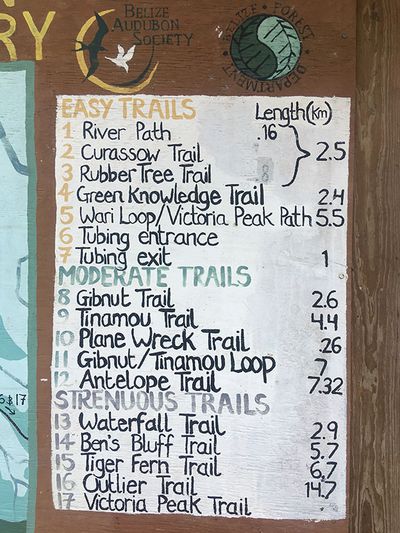 RY
BELIZE
AUDUBON
SOCIETY
BELIZE FOREST
DEPARTMENT
EASY TRAILS Length(km)
1 River Path .16
2 Curassow Trail 2.5
3 Rubber Tree Trail
4 Green Knowledge Trail 2.4
5 Wari Loop/Victoria Peak Path 5.5
6 Tubing entrance
7 Tubing exit 1
MODERATE TRAILS
8 Gibnut Trail 2.6
9 Tinamou Trail 4.4
10 Plane Wreck Trail .26
11 Gibnut/Tinamou Loop 7
12 Antelope Trail 7.32
STRENUOUS TRAILS
13 Waterfall Trail 2.9
14 Ben's Bluff Trail 5.7
15 Tiger Fern Trail 6.7
16 Outlier Trail 14.7
17 Victoria Peak Trail